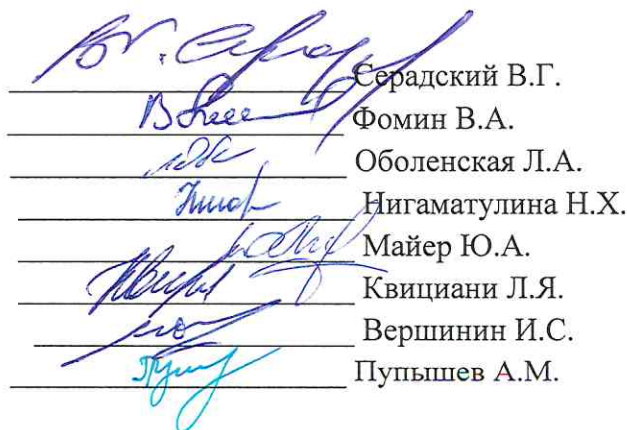 Серадский В.Г.
Фомин В.А.
Оболенская Л.А.
Нигаматулина Н.Х.
Майер Ю.А.
Квициани Л.Я.
Вершинин И.С.
Пупышев А.М.